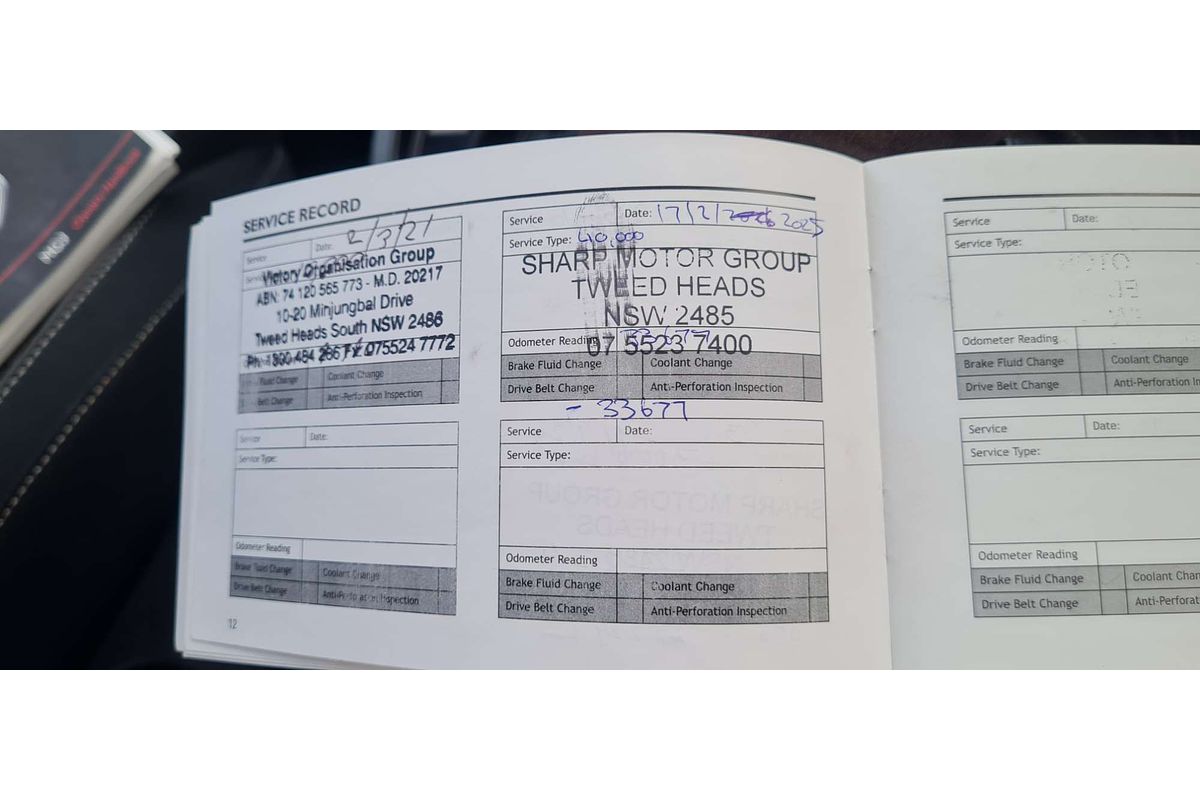 Owner's Handbook
SERVICE RECORD
Service
Date: 2/3/21
Victory Organisation Group
ABN: 74 120 565 773 - M.D. 20217
10-20 Minjungbal Drive
Tweed Heads South NSW 2486
Ph: 1300 484 266 Fx 075524 7772
Fluid Change
Coolant Change
Belt Change
Anti-Perforation Inspection
Service
Date: 17/2/2025
Service Type: 40,000
SHARP MOTOR GROUP
TWEED HEADS
NSW 2485
Odometer Reading 33677
07 5523 7400
Brake Fluid Change
Coolant Change
Drive Belt Change
Anti-Perforation Inspection
- 33677
Service
Date:
Service Type:
Odometer Reading
Brake Fluid Change
Coolant Change
Drive Belt Change
Anti-Perforation Inspection
Service
Date:
Service Type:
Odometer Reading
Brake Fluid Change
Coolant Change
Drive Belt Change
Anti-Perforation Inspection
12
Service
Date:
Service Type:
Odometer Reading
Brake Fluid Change
Coolant Change
Drive Belt Change
Anti-Perforation In
Service
Date:
Service Type:
Odometer Reading
Brake Fluid Change
Coolant Chan
Drive Belt Change
Anti-Perforat